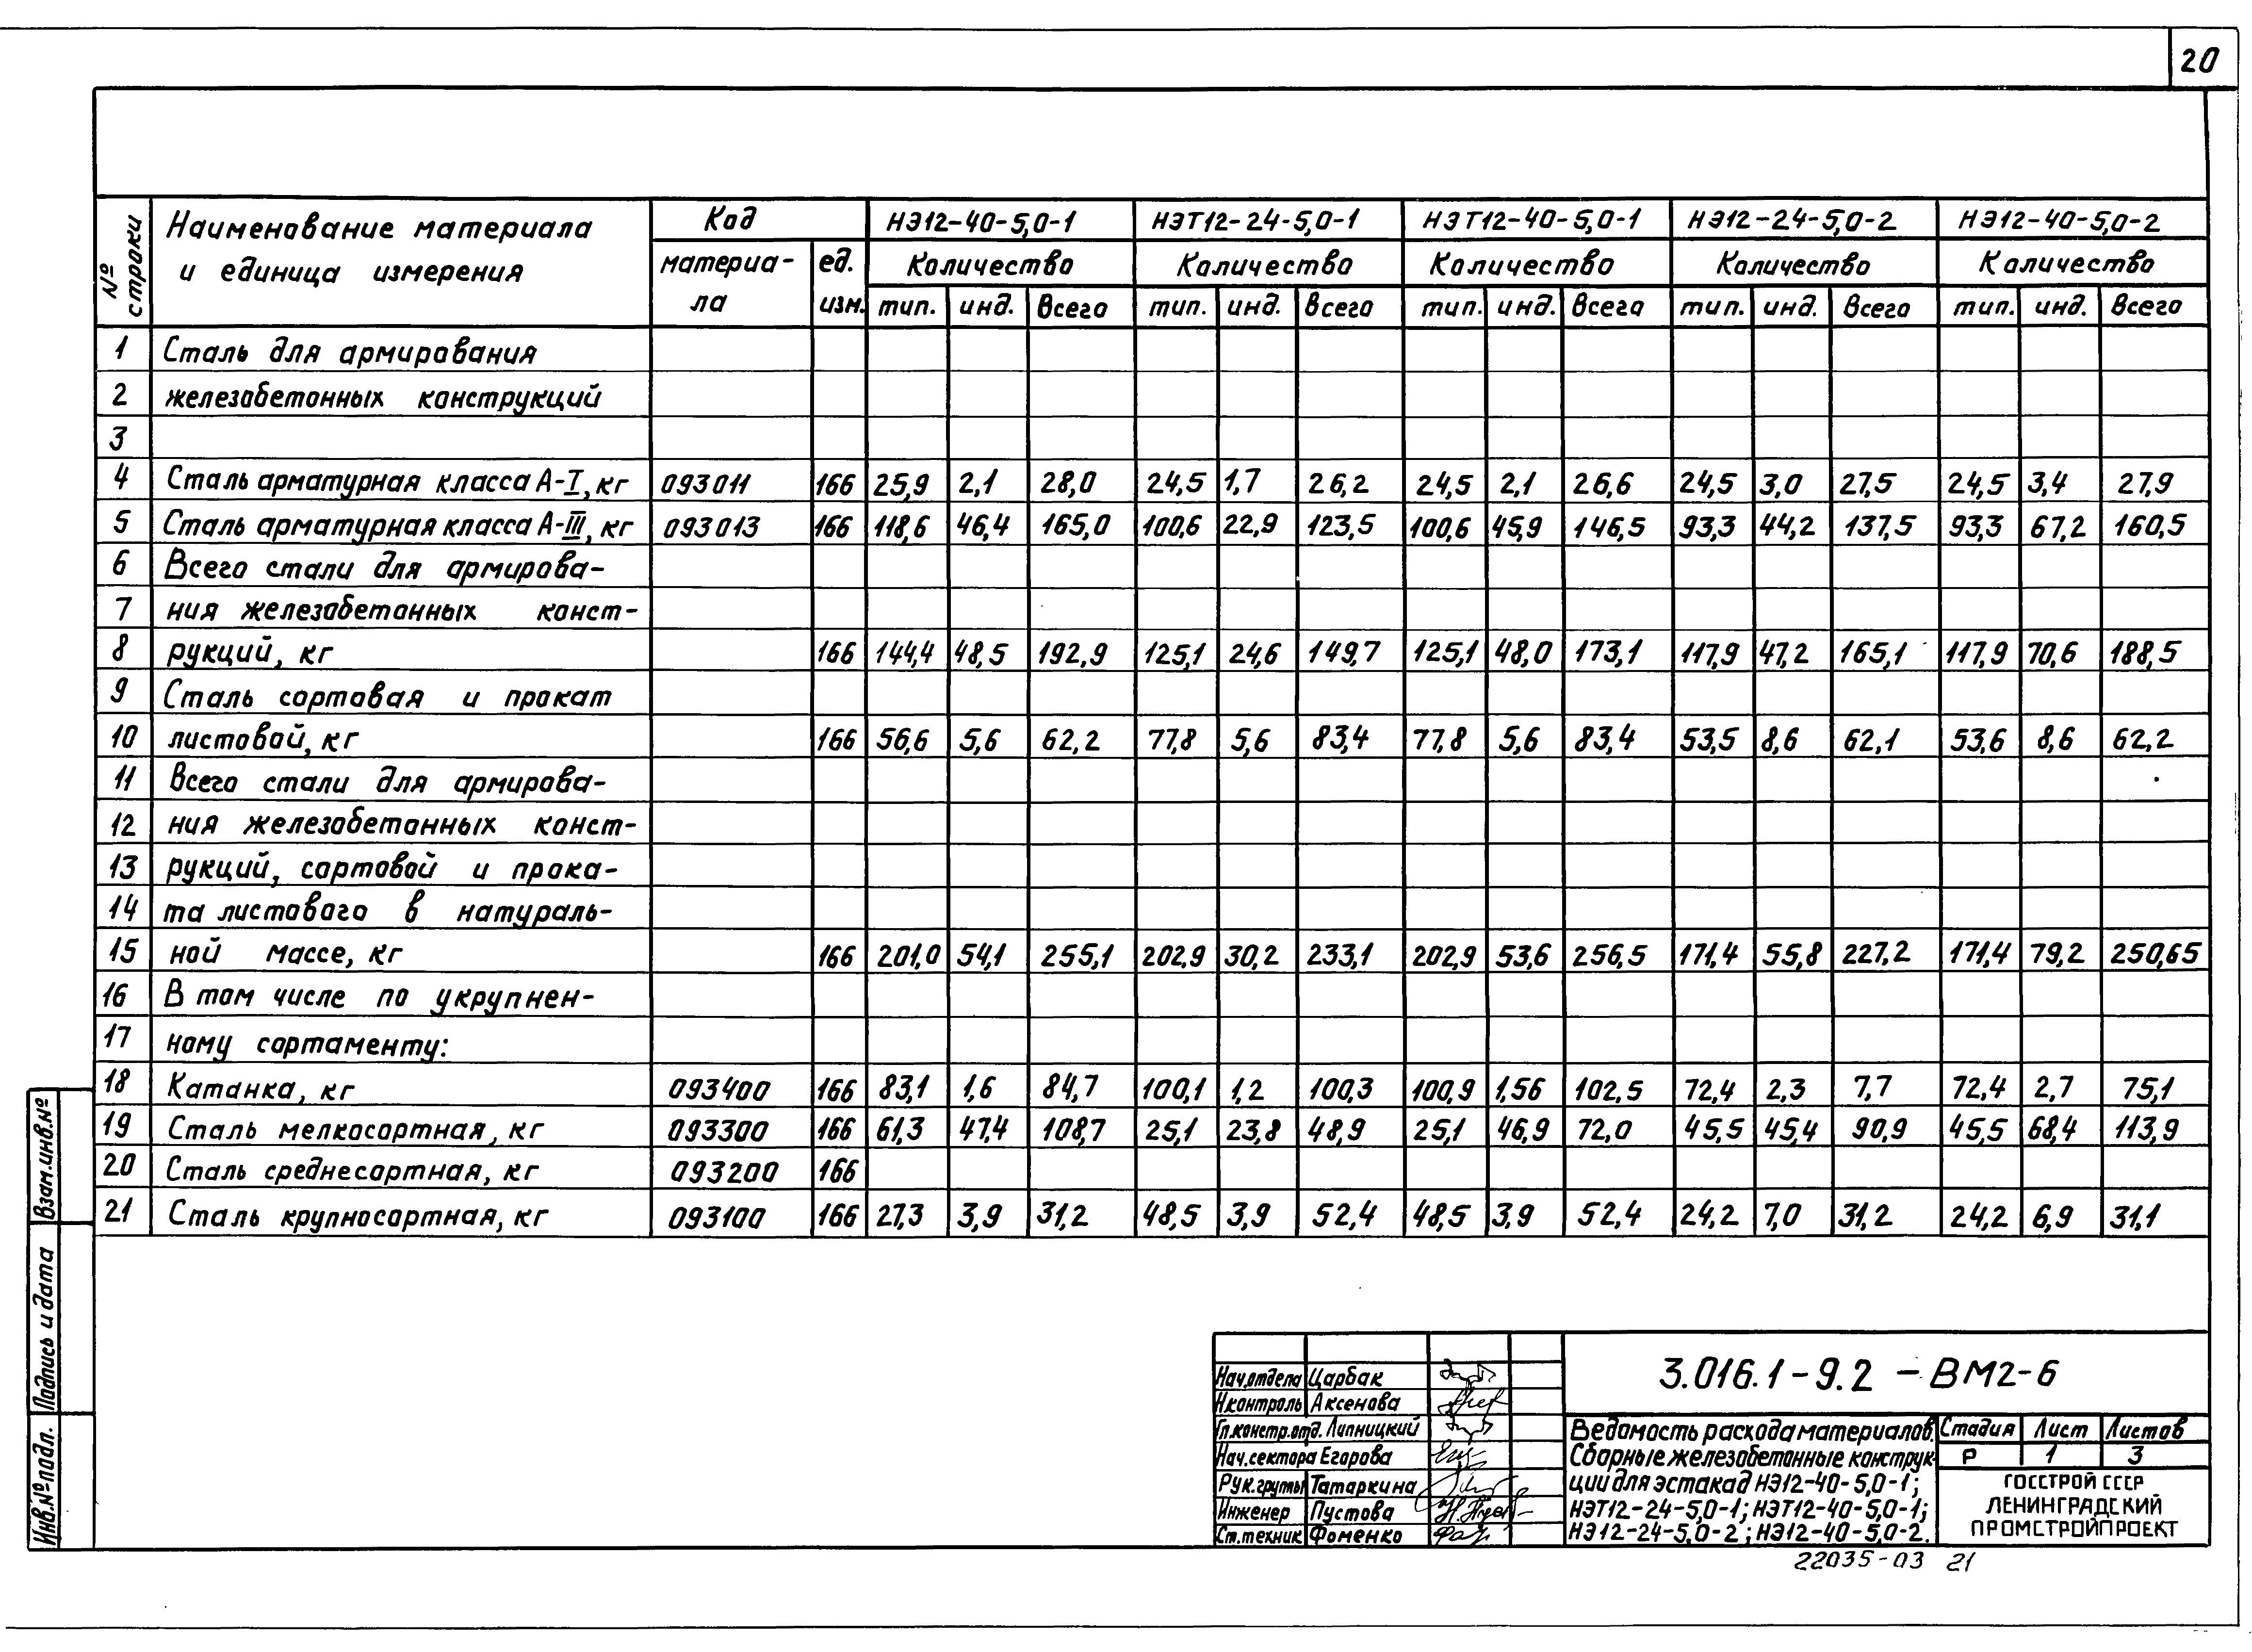 20
№ строки Наименование материала и единица измерения Код НЭ12-40-5,0-1 НЭТ12-24-5,0-1 НЭТ12-40-5,0-1 НЭ12-24-5,0-2 НЭ12-40-5,0-2
материа- ла ед. изм. Количество Количество Количество Количество Количество
тип. инд. Всего тип. инд. Всего тип. инд. Всего тип. инд. Всего тип. инд. Всего
1 Сталь для армирования
2 железобетонных конструкций
3
4 Сталь арматурная класса А-I, кг 093011 166 25,9 2,1 28,0 24,5 1,7 26,2 24,5 2,1 26,6 24,5 3,0 27,5 24,5 3,4 27,9
5 Сталь арматурная класса А-III, кг 093013 166 118,6 46,4 165,0 100,6 22,9 123,5 100,6 45,9 146,5 93,3 44,2 137,5 93,3 67,2 160,5
6 Всего стали для армирова-
7 ния железобетонных конст-
8 рукций, кг 166 144,4 48,5 192,9 125,1 24,6 149,7 125,1 48,0 173,1 117,9 47,2 165,1 117,9 70,6 188,5
9 Сталь сортовая и прокат
10 листовой, кг 166 56,6 5,6 62,2 77,8 5,6 83,4 77,8 5,6 83,4 53,5 8,6 62,1 53,6 8,6 62,2
11 Всего стали для армирова-
12 ния железобетонных конст-
13 рукций, сортовой и прока-
14 та листового в натураль-
15 ной массе, кг 166 201,0 54,1 255,1 202,9 30,2 233,1 202,9 53,6 256,5 171,4 55,8 227,2 171,4 79,2 250,65
16 В том числе по укрупнен-
17 ному сортаменту:
18 Катанка, кг 093400 166 83,1 1,6 84,7 100,1 1,2 100,3 100,9 1,56 102,5 72,4 2,3 7,7 72,4 2,7 75,1
19 Сталь мелкосортная, кг 093300 166 61,3 47,4 108,7 25,1 23,8 48,9 25,1 46,9 72,0 45,5 45,4 90,9 45,5 68,4 113,9
20 Сталь среднесортная, кг 093200 166
21 Сталь крупносортная, кг 093100 166 27,3 3,9 31,2 48,5 3,9 52,4 48,5 3,9 52,4 24,2 7,0 31,2 24,2 6,9 31,1
Взам.инв.№
Подпись и дата
Инв.№подл.
Нач.отдела Царбак
Н.контроль Аксенова
Гл.констр.отд. Липницкий
Нач.сектора Егорова
Рук.группы Татаркина
Инженер Пустова
Ст.техник Фоменко
3.016.1-9.2 - ВМ2-6
Ведомость расхода материалов.
Сборные железобетонные конструк-
ции для эстакад НЭ12-40-5,0-1;
НЭТ12-24-5,0-1; НЭТ12-40-5,0-1;
НЭ12-24-5,0-2; НЭ12-40-5,0-2.
Стадия Лист Листов
Р 1 3
ГОССТРОЙ СССР
ЛЕНИНГРАДСКИЙ
ПРОМСТРОЙПРОЕКТ
22035-03 21